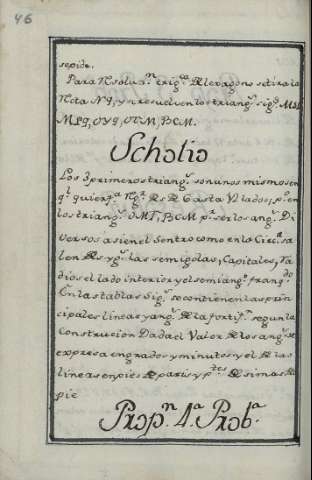 46
sepide.
Para Resoluⁿ. trigᶜᵃ de levagons se tira la
Recta N9, y se resuelven los triangˢ. sigˢ. MSI
MSg, OYg, OTM, BCM.
Scholio
Los 3 primeros triangˢ. son unos mismos en
qˡ. quierᵃ figᵃ. de Rs de Gasta VI lados, pº. en
los triangˢ. OMT, BCM pʳ. ser los angˢ. Di
versos asi en el Sentro como en la Circᵃ. sa
len Rs ypˢ. las semigolas, Capitales, Ra
dios el lado interior y el semiangº. frangᵈᵒ.
En las tablas Sigˢ. se contienen las prin
cipales lineas y angˢ. de la fortifⁿ. segun la
Construcion Dada el Valor de los angˢ. se
expresa en grados y minutos y el de las
lineas en pies de paris y pᵗᵉˢ. Desimas de
pie
Propⁿ. 4ᵃ. Probᵃ.